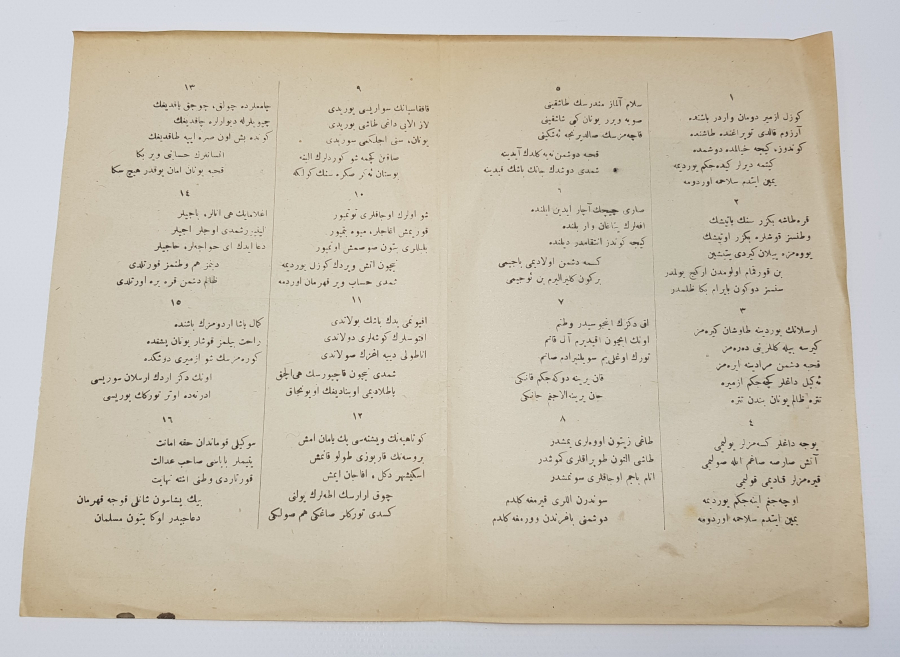 ١
كوزل ازمير دومان واردر باشنده
آرزوم قالدى توپراغنده طاشنده
كوندوز، كيجه خيالمده دوشمده
كيتمه ديرلر كيده‌جكم يورديمه
يمين ايتدم سلاحمه اوردومه
٢
قره‌طاشه بكزر سنك ياتيشك
وطنسز قوشلره بكزر اوتيشك
يووه‌مزه ييلان كيردى يتيشين
بن قورقمام اولومدن اركج بولمدر
سنسز دوكون بايرام بكا ظلمدر
٣
ارسلانك يوردينه طاوشان كيره‌مز
كيرسه بيله كلنلرينى ده‌ره‌مز
قحبه دشمن مرادينه ايره‌مز
داغلر كچه‌جكم ازميره
تتره ظالم يونان بندن تتره
٤
يوجه داغلر كسه‌مزلر يوليمى
آتش صارسه صاغم ايله صوليمى
قيره‌مزلر قنادمى قوليمى
اوچه‌جغم اينه‌جكم يورديمه
يمين ايتدم سلاحمه اوردومه
٥
سلام آلماز مندرسك طاشقينى
صويه ويرر يونان كبى شاشقينى
قاچه‌مزسك صالديرنجه
قحبه دوشمن نه‌يه كلدك آيدينه
شمدى دوشدك جانك باشك قيدينه
٦
صارى چيچك آچار آيدين ايلنده
افه‌لرك ياتاغان وار بلنده
كيجه كوندز انتقامدر ديلنده
كسمه دشمن اولاديمى باجيمى
بركون كليرالريم بن ئوجيمى
٧
اق دكزك اينجوسيدر وطنم
اونك ايچون اقيديرم آل قانم
تورك اوغلى‌يم سويلنيرادم صانم
قان يرينه دوكه‌جكم قانكى
جان يرينه‌الاجغم جانكى
٨
طاغى زيتون اووه‌لرى يمشدر
طاشى آلتون طوپراقلرى كوشدر
انام باجم اوجاقلرى سونمشدر
سوندرن اللرى قيرمغه كلدم
دوشمنى باغرندن وورمغه كلدم
٩
قافقاسيانك سواريسى يوريدى
لاز الايى داغى طاشى بوريدى
يونان، سنى اجلكمى سوريدى
صاقين كچمه شو كوردلرك الينه
بوستان صكره سنك كوللكه
١٠
شو اولرك اوجاقلرى توتميور
قوريمش اغاجلر، ميوه بتميور
بلبللرى بتون صوصمش اوتميور
نيچون آتش ويردك كوزل يورديمه
شمدى حساب وير قهرمان اوردمه
١١
افيونمى يدك باشك بولاندى
افنوسلرك كوشه‌لرى دولاندى
اناطولى دييه اغزك صولاندى
شمدى نيچون قاچيورسك هى‌الچق
باطلاديمى اويناديغك اويونجاق
١٢
كوتاهيه‌نك ويشنه‌سى پك يامان ايمش
بروسه‌نك قارپوزى طولو قانمش
اسكيشهر دكل، افاجان ايمش
چوق ارارسك اطه‌لرك يولنى
كسدى توركلر صاغكى هم صولكى
١٣
چامملرده چولق، چوجق ياقديغك
چيويلرله ديوارلره چاقديغك
كونده بش اون صره ايپه طاقديغك
انسانلرك حسابنى وير بكا
قحبه يونان امان يوقدر هيچ سكا
١٤
اغلامايك هى انالره باجيلر
ليديرشمدى اوجلر اجيلر
دعا ايدك اى خواجه‌لر، حاجيلر
دينمز هم وطنمز قورتلدى
ظالم دشمن قره يره اورتلدى
١٥
كمال پاشا اردومزك باشنده
راحت بيلمز قوشار يونان پشنده
كوره‌مرسك شو ازميرى دوشكده
اونك دكز اردك ارسلان سوريسى
ادرنه‌ده اوتر توركك بوريسى
١٦
سوكيلى قوماندان حقه امانت
يتيملر باباسى صاحب عدالت
قورتاردى وطنى اشته نهايت
بيك يشاسون شانلى قوجه قهرمان
دعاجيدر اوكا بتون مسلمان